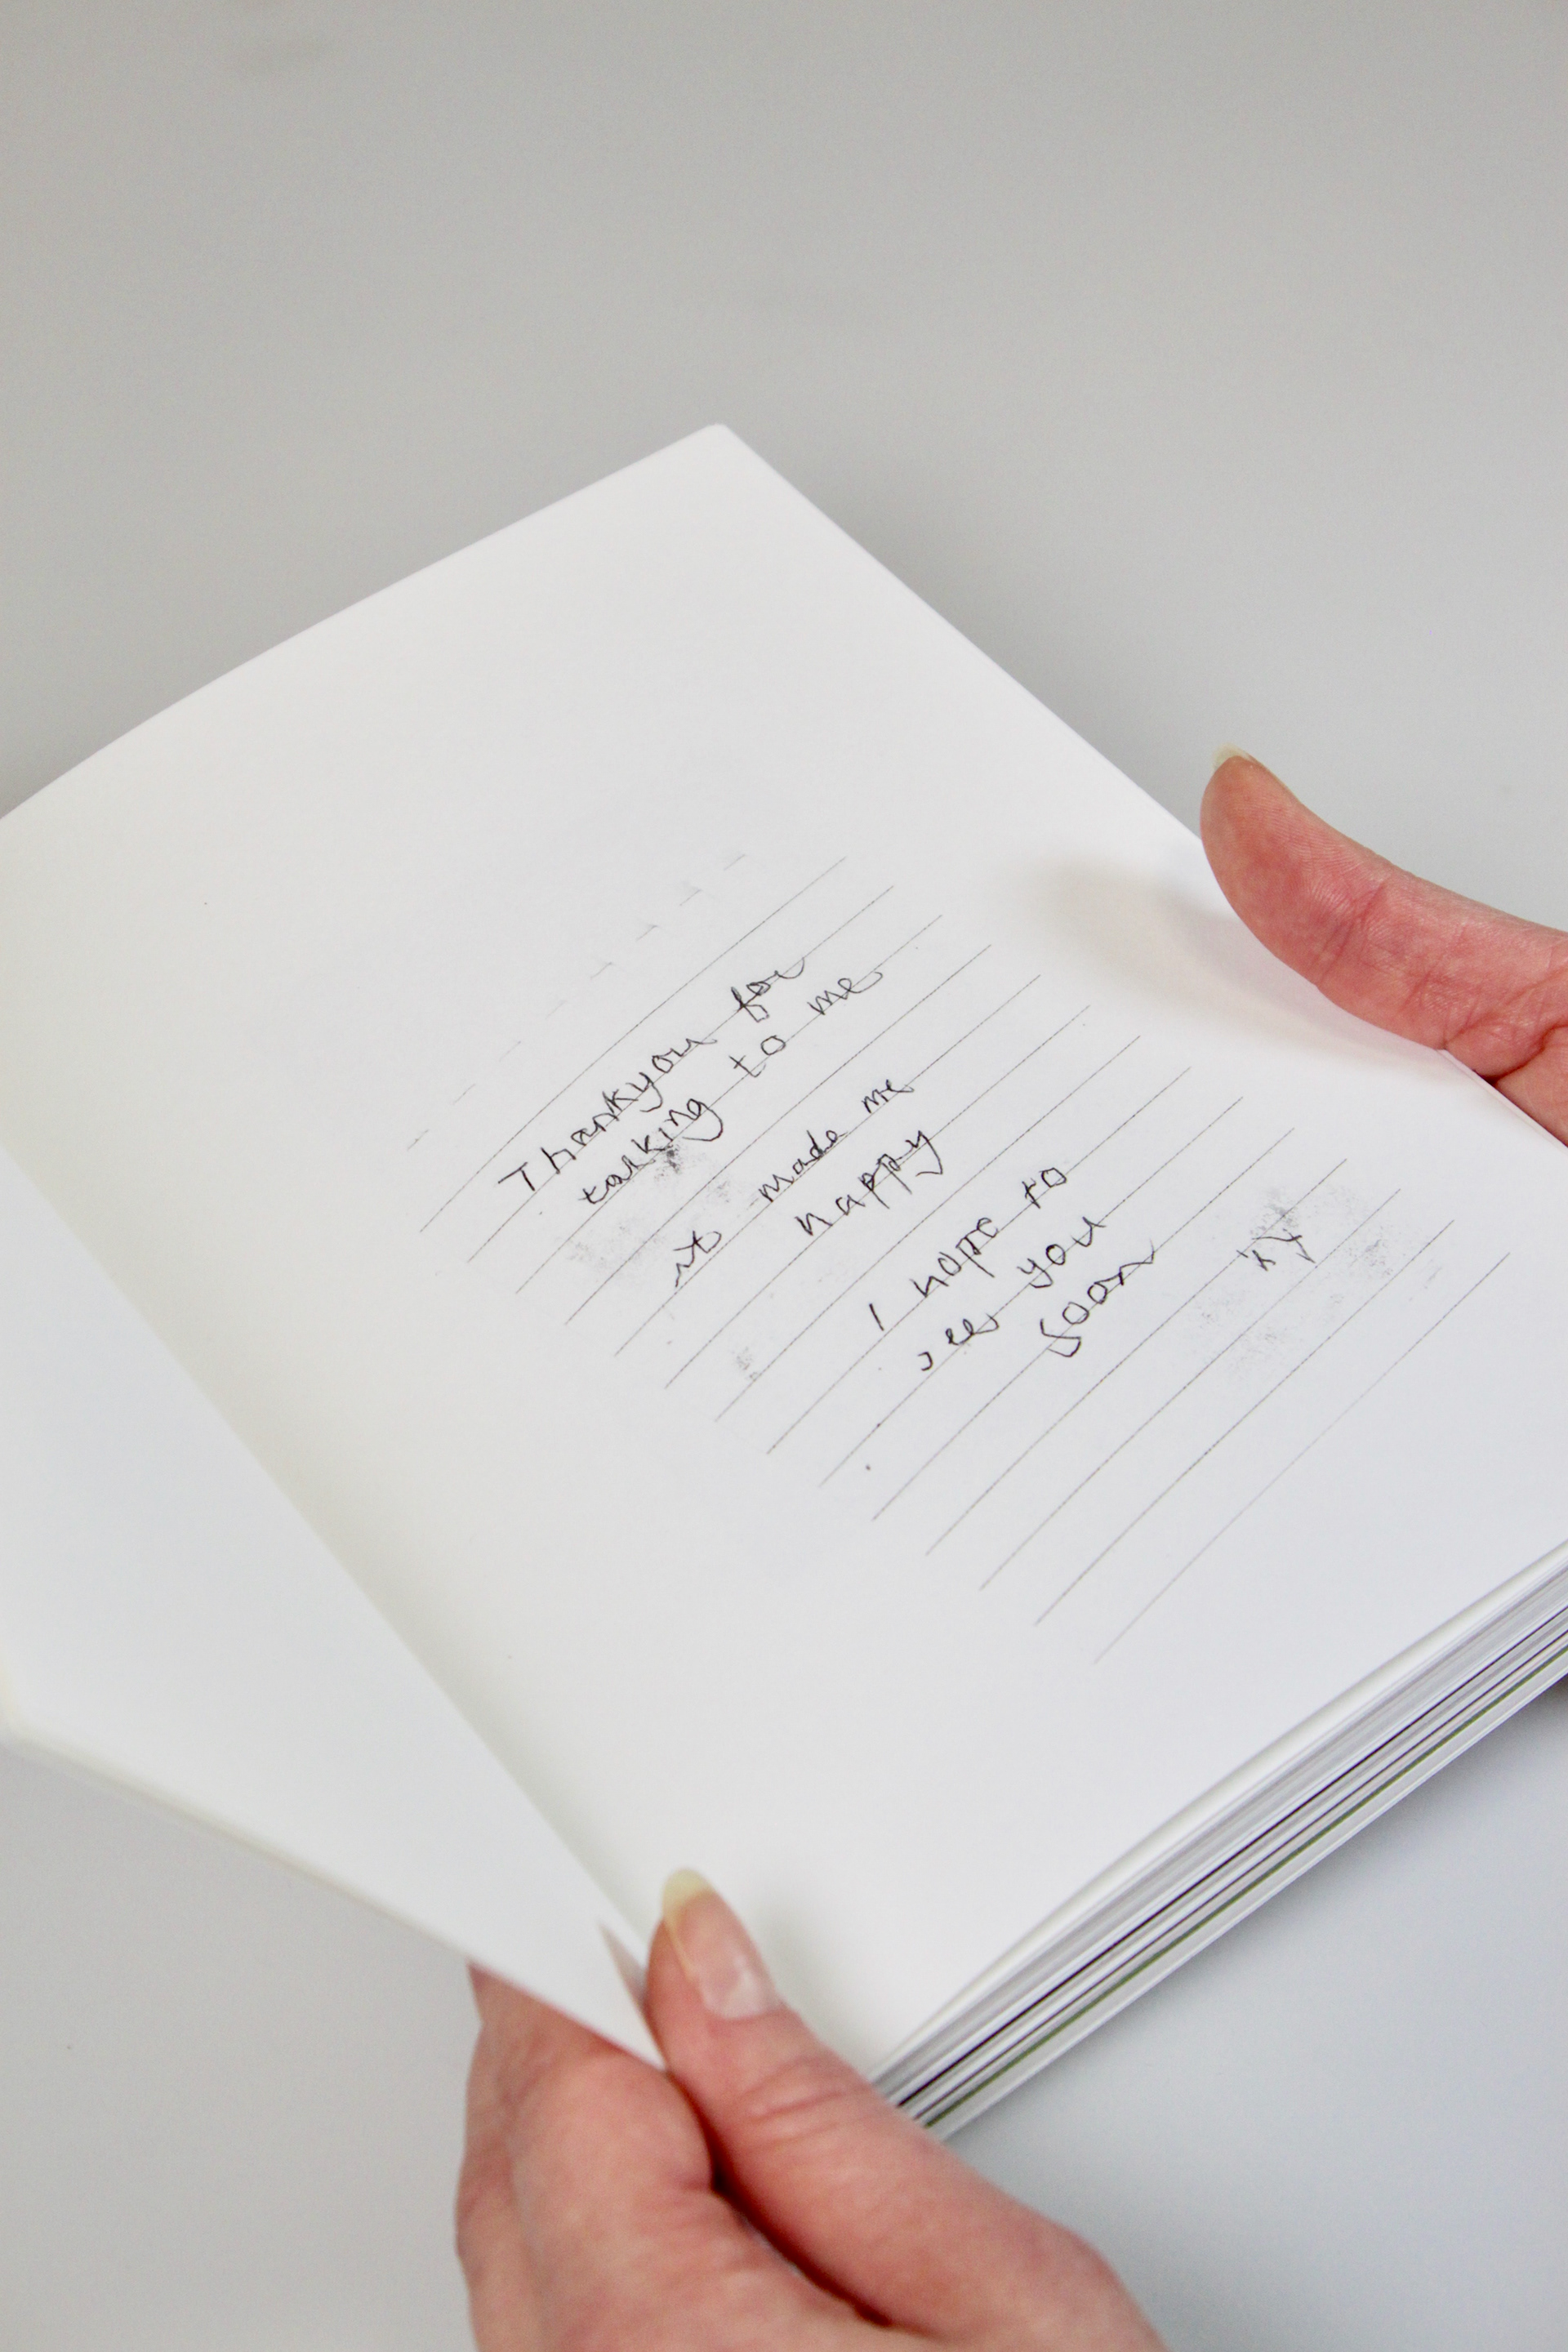 Thankyou for
talking to me
it made me
happy
I hope to
see you
soon
xx